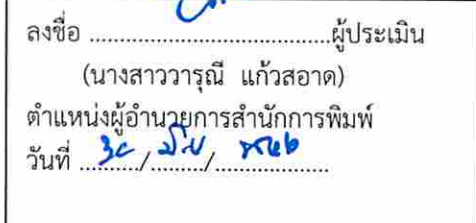 ลงชื่อ ....................................ผู้ประเมิน
(นางสาววารุณี แก้วสอาด)
ตำแหน่งผู้อำนวยการสำนักการพิมพ์
วันที่ ........../........./..................